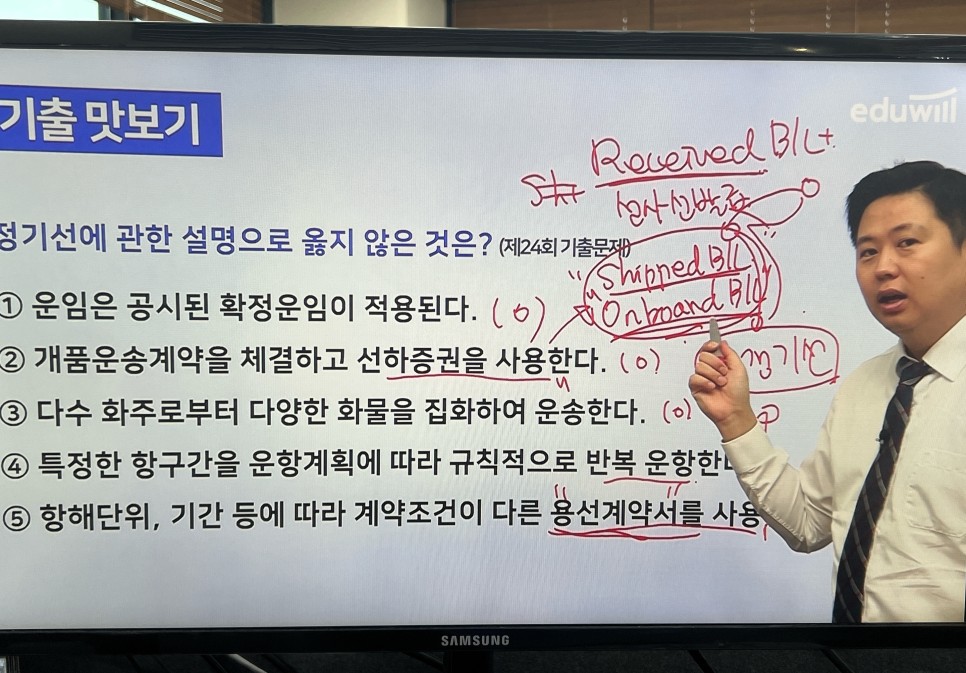 기출 맛보기
eduwill
Received B/L +
정기선에 관한 설명으로 옳지 않은 것은? (제24회 기출문제)
"Shipped B/L
Onboard B/L
① 운임은 공시된 확정운임이 적용된다. (O)
② 개품운송계약을 체결하고 선하증권을 사용한다. (O)
③ 다수 화주로부터 다양한 화물을 집화하여 운송한다. (O)
④ 특정한 항구간을 운항계획에 따라 규칙적으로 반복 운항한
⑤ 항해단위, 기간 등에 따라 계약조건이 다른 용선계약서를 사용
SAMSUNG